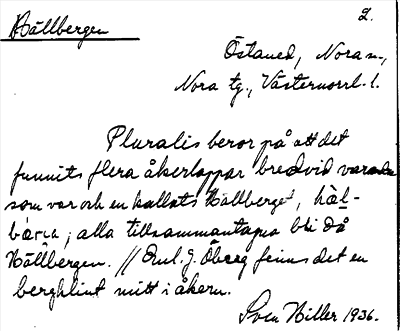 Hällbergen 2.
Östaned, Nora sn.,
Nora tg., Västernorrl. l.
Pluralis beror på att det
funnits flera åkerlappar bredvid varandra
som var och en kallats Hällberget, häl-
; alla tillsammantagna bli då
Hällbergen. // Enl. J. Öberg finns det en
bergklint mitt i åkern.
Sven Hiller 1936.